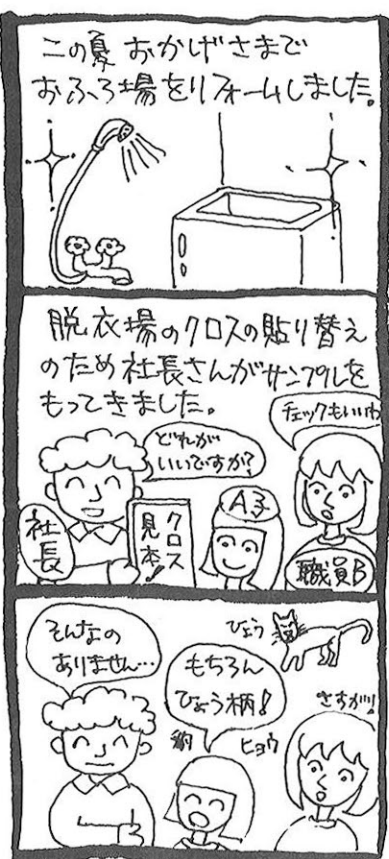 この夏 おかげさまで
おふろ場をリフォームしました。
脱衣場のクロスの貼り替え
のため社長さんがサンプルを
もってきました。
チェックもいいわ
どれが
いいですか?
A子
社長
クロス
見本!
職員B
そんなの
ありません…
もちろん
ひょう柄!
ひょう
豹
ヒョウ
さすがッ!